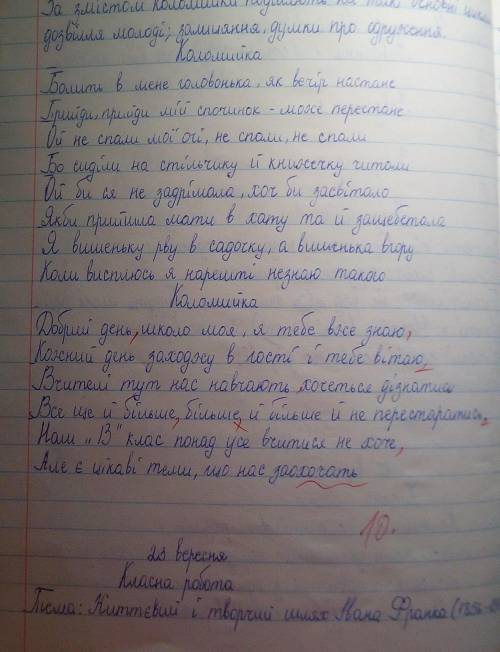 За змістом коломийки поділяють на такі основні цикли
дозвілля молоді; залицяння, думки про одруження.
Коломийка
Болить в мене головонька, як вечір настане
Прийди, прийди мій спочинок - може перестане
Ой не спали мої очі, не спали, не спали
Бо сиділи на стільчику й книжечку читали
Ой би ся не задрімала, хоч би засвітало
Якби прийшла мати в хату та й защебетала
Я вишеньку рву в садочку, а вишенька вгору
Коли виспиюсь я нарешті незнаю такого
Коломийка
Добрий день, школо моя, я тебе вже знаю,
Кожний день заходжу в гості і тебе вітаю.
Вчителі тут нас навчають, хочеться дізнатися
Все ще й більше, більше й більше й не перестаратись.
Наш "13" клас понад усе вчитися не хоче,
Але є цікаві теми, що нас заохочать
10.
23 вересня
Класна робота
Тема: Життєвий і творчий шлях Івана Франка (1856-